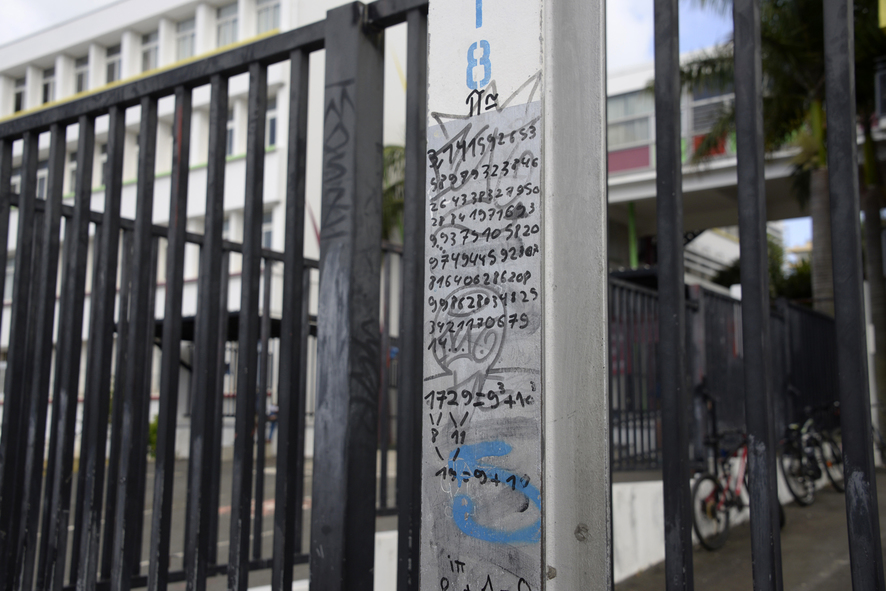 1
8
π≃
3,141592653
58979323846
264338327950
28841971693
99375105820
974944592307
816406286208
998628034825
3421170679
14...
1729=9³+10³
8 11
19=9+10
e^iπ+1=0